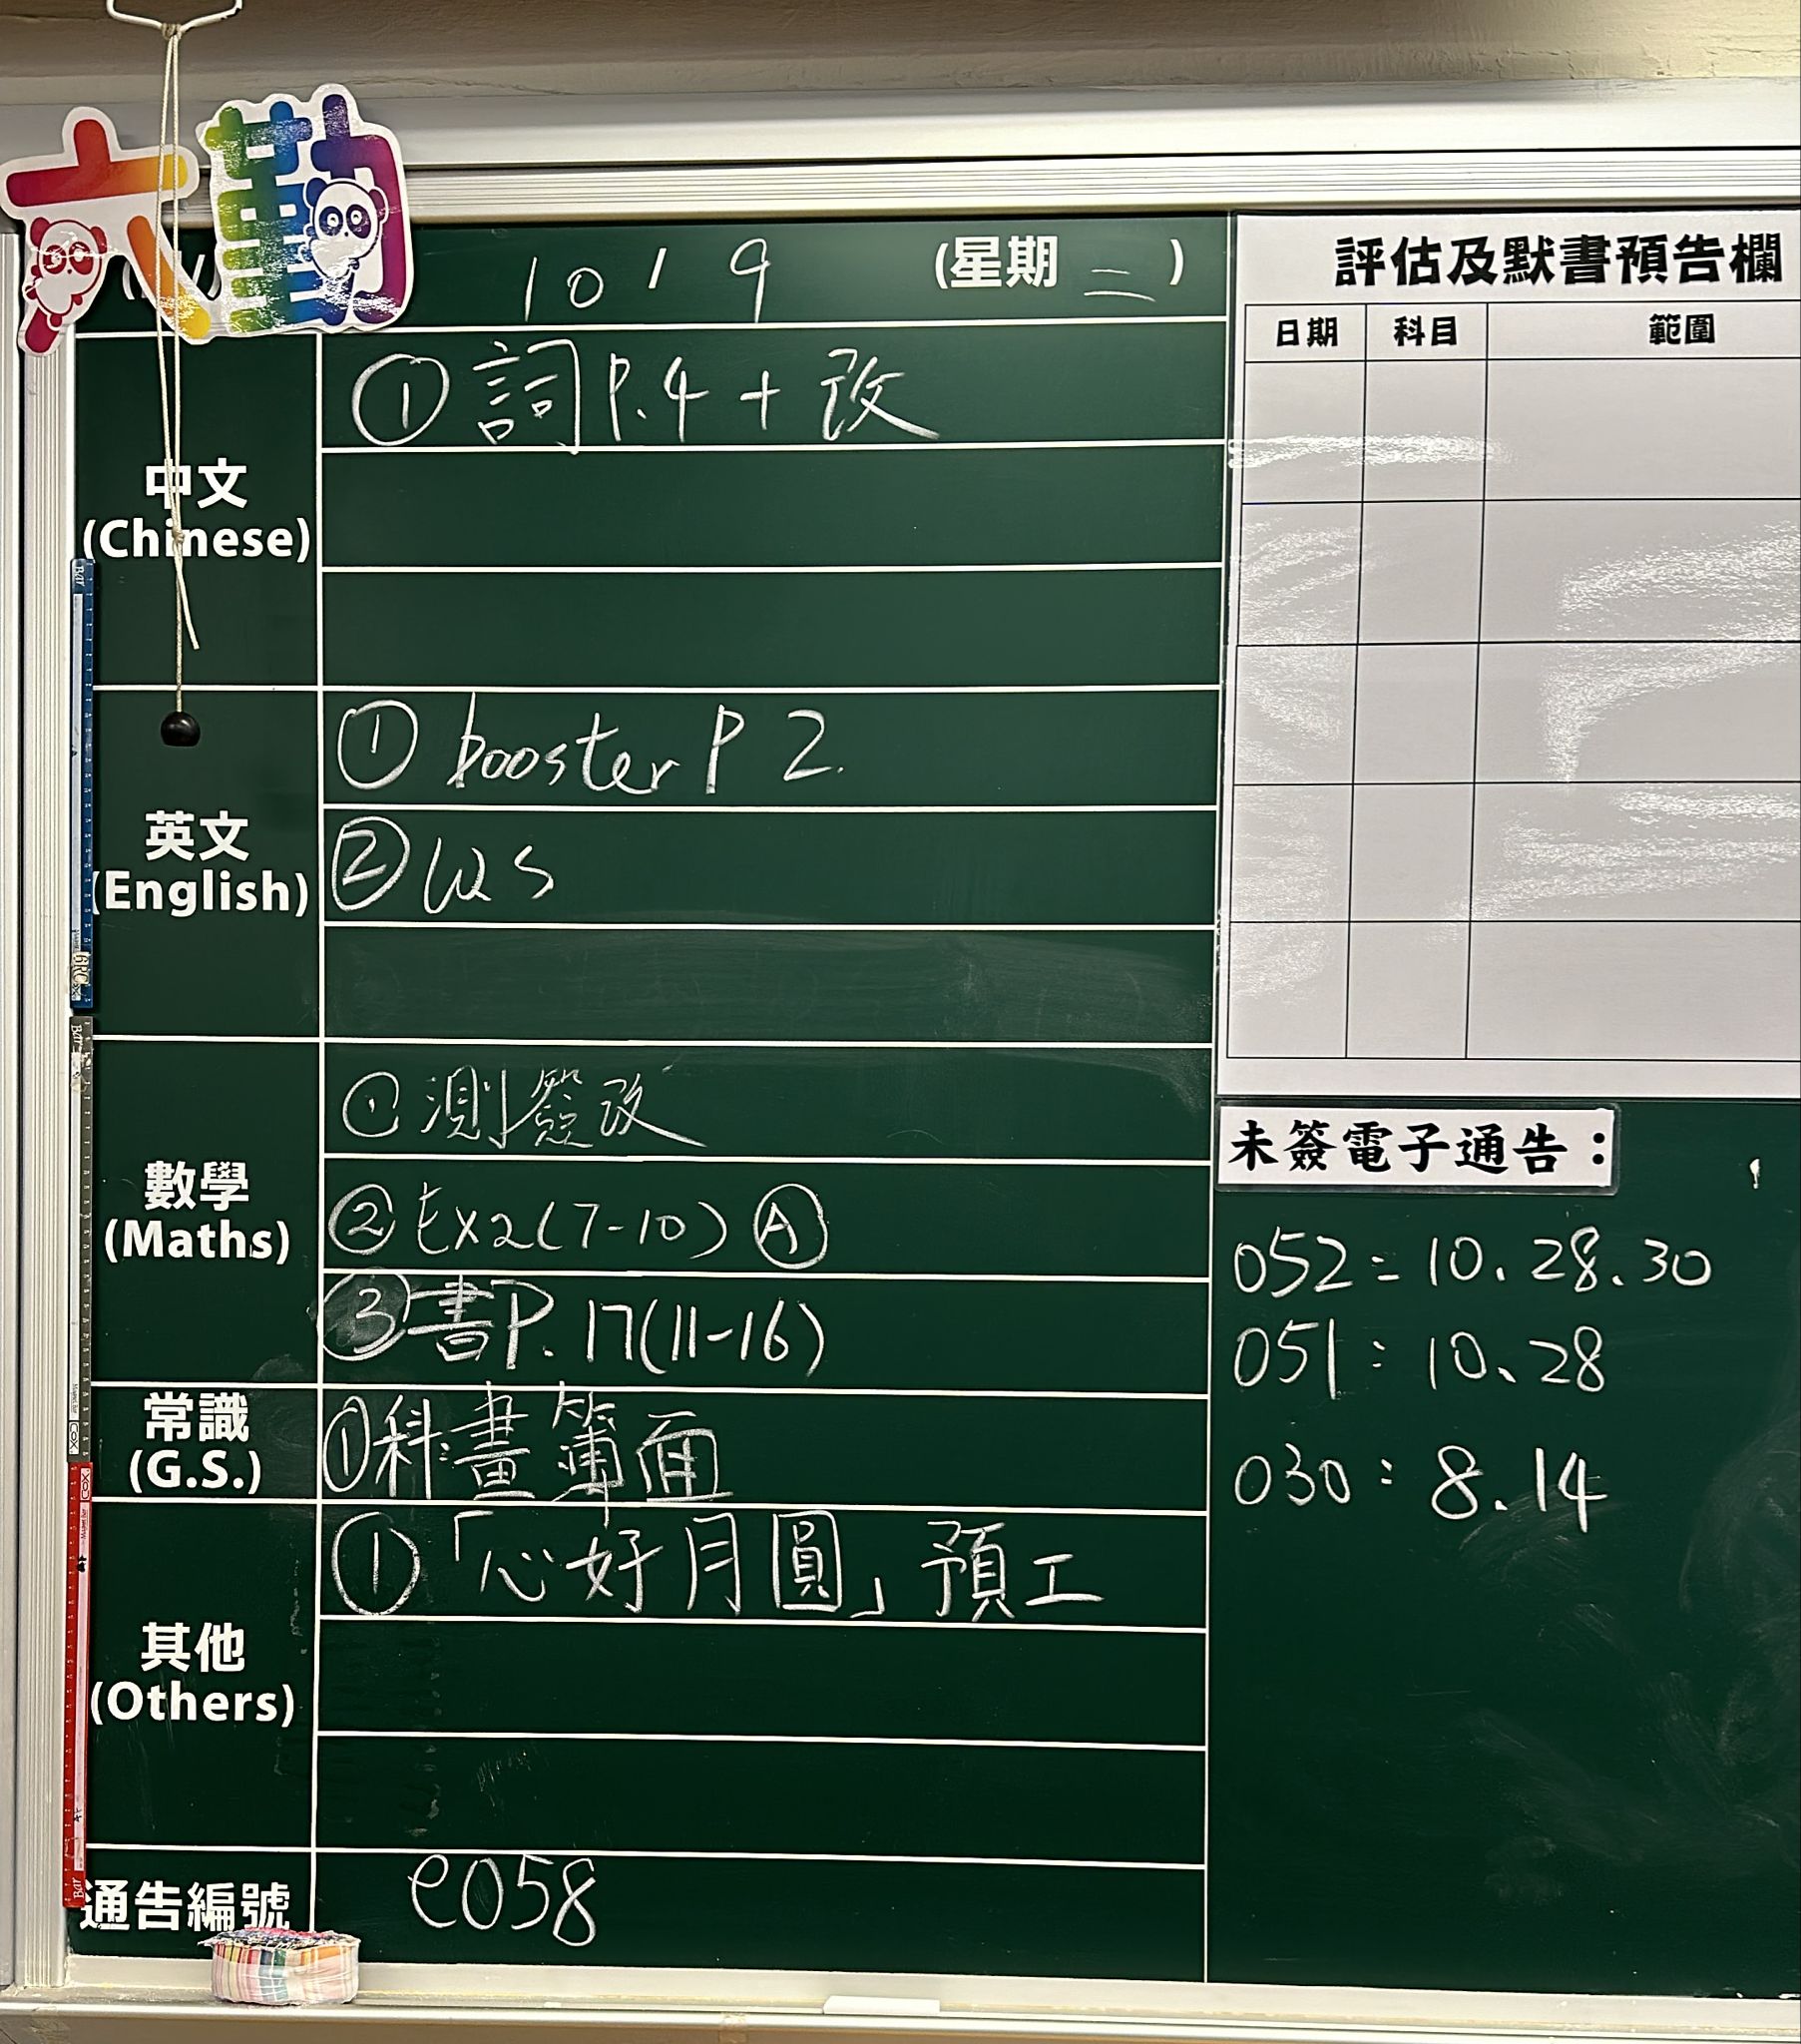 六勤
10 / 9 (星期 二 )
中文
(Chinese)
① 詞 P.4 + 改
英文
(English)
① booster P 2.
② WS
數學
(Maths)
① 測簽改
② Ex2(7-10) Ⓐ
③ 書P. 17(11-16)
常識
(G.S.)
① 科:畫簿面
其他
(Others)
① 「心好月圓」預工
通告編號
e058
評估及默書預告欄
日期 科目 範圍
未簽電子通告：
052 : 10、28、30
051 : 10、28
030 : 8、14